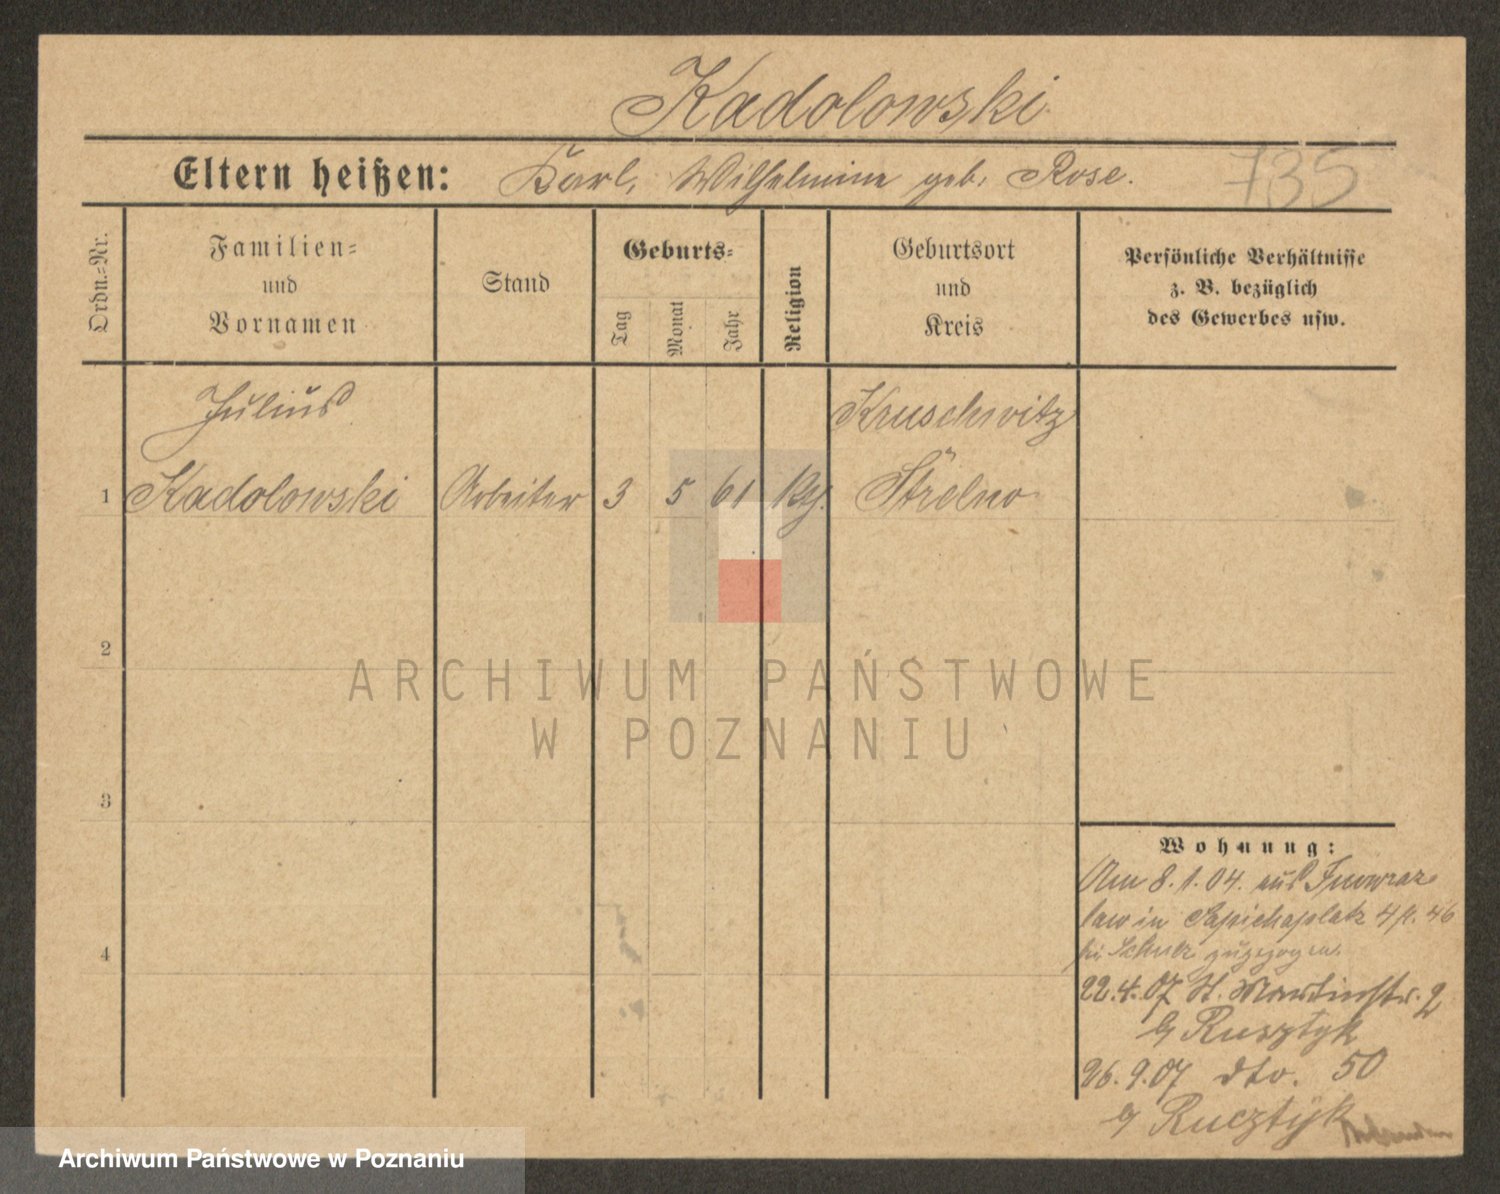 Kadolowski
Eltern heißen: Karl, Wilhelmine geb. Rose.
735
Ordn.=Nr.
Familien=
und
Vornamen
Stand
Geburts=
Tag
Monat
Jahr
Religion
Geburtsort
und
Kreis
Persönliche Verhältnisse
z. B. bezüglich
des Gewerbes usw.
Julius
Kruschwitz
1 Kadolowski Arbeiter 3 5 61 Strelno
2
3
4
ARCHIWUM PAŃSTWOWE
W POZNANIU
Wohnung:
Am 8.1.04. aus Inowraz
law in Sapiehaplatz 4 46
bei Schulz zugezogen.
22.4.07 St. Martinstr. 2
b/ Rusztyk
26.9.07 dto. 50
b/ Rucztyk
Archiwum Państwowe w Poznaniu